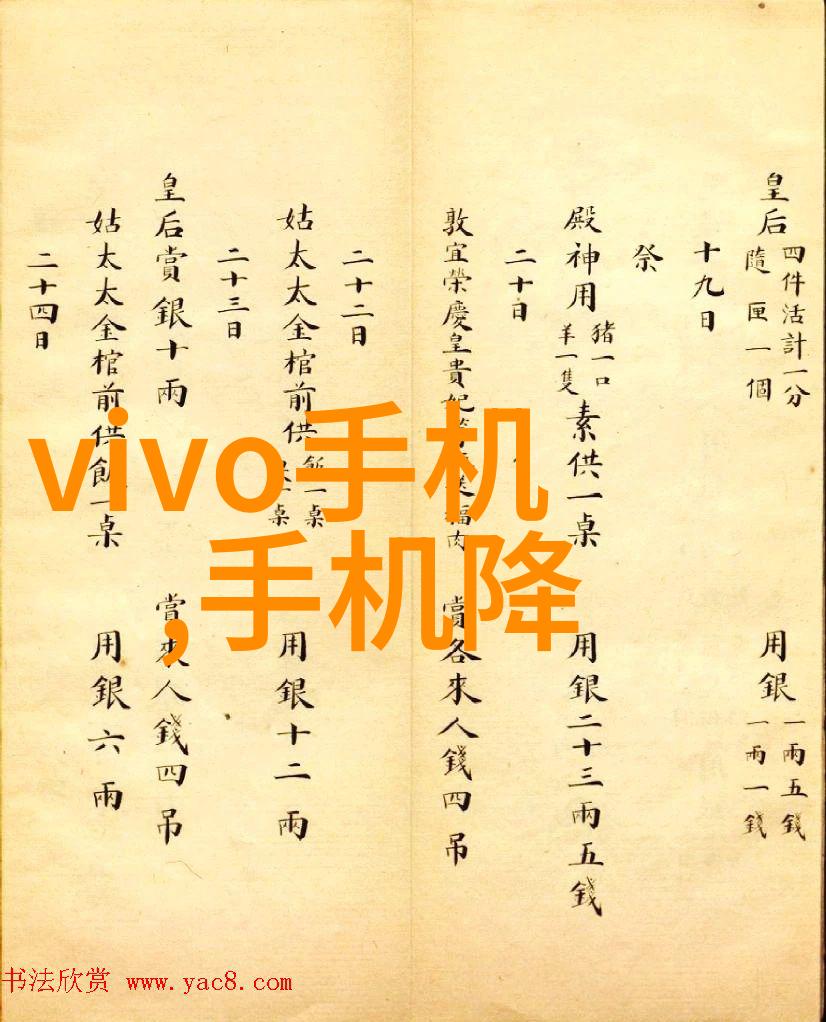 皇后 四件活計一分 隨匣一個 用銀 一兩五錢 一兩一錢
十九日
祭
殿神用 豬一口 羊一隻 素供一桌 用銀二十三兩五錢
二十日
敦宜榮慶皇貴妃 福肉 賞各來人錢四吊
二十二日
姑太太金棺前供 飯一桌 一桌 用銀十二兩
二十三日
皇后賞銀十兩 賞來人錢四吊
姑太太金棺前供飯一桌 用銀六兩
二十四日
vivo手机
,手机降
书法欣赏 www.yac8.com